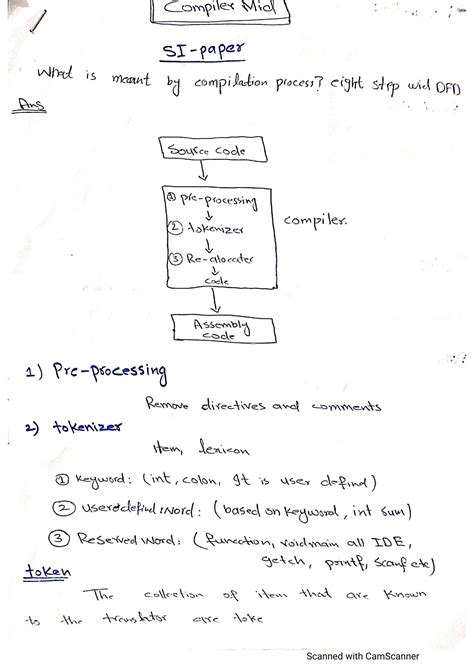 Compiler Mid
SI-paper
What is meant by compilation process? eight step wid DFD
Ans
Source code
① pre-processing
② tokenizer
compiler.
③ Re-alocater
code
Assembly
code
1) Pre-processing
Remove directives and comments
2) tokenizer
Item, lexicon
① Keyword: (int, colon, It is user defind)
② userdefind word: (based on keyword, int sum)
③ Reserved word: (function, voidmain all IDE,
getch, printf, scanf etc)
token
The collection of item that are known
to the translator are toke
Scanned with CamScanner